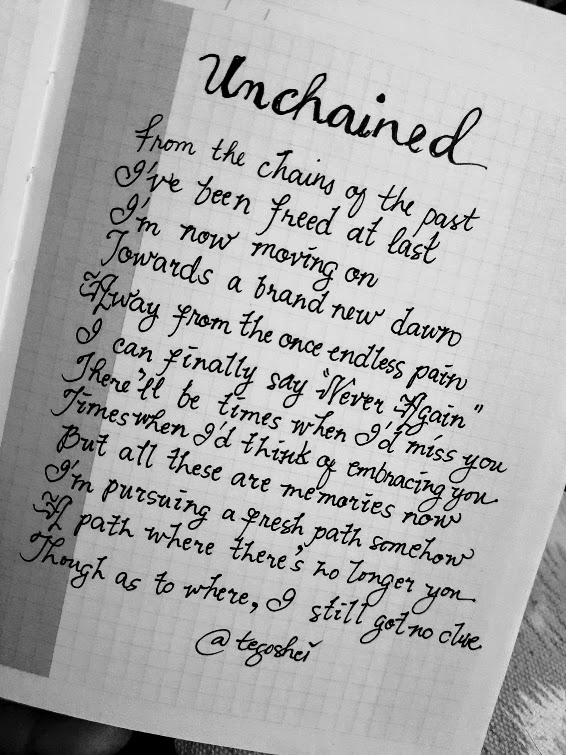 Unchained
From the chains of the past
I've been freed at last
I'm now moving on
Towards a brand new dawn
Away from the once endless pain
I can finally say "Never Again"
There'll be times when I'd miss you
Times when I'd think of embracing you
But all these are memories now
I'm pursuing a fresh path somehow
A path where there's no longer you
Though as to where, I still got no clue
@tegoshei